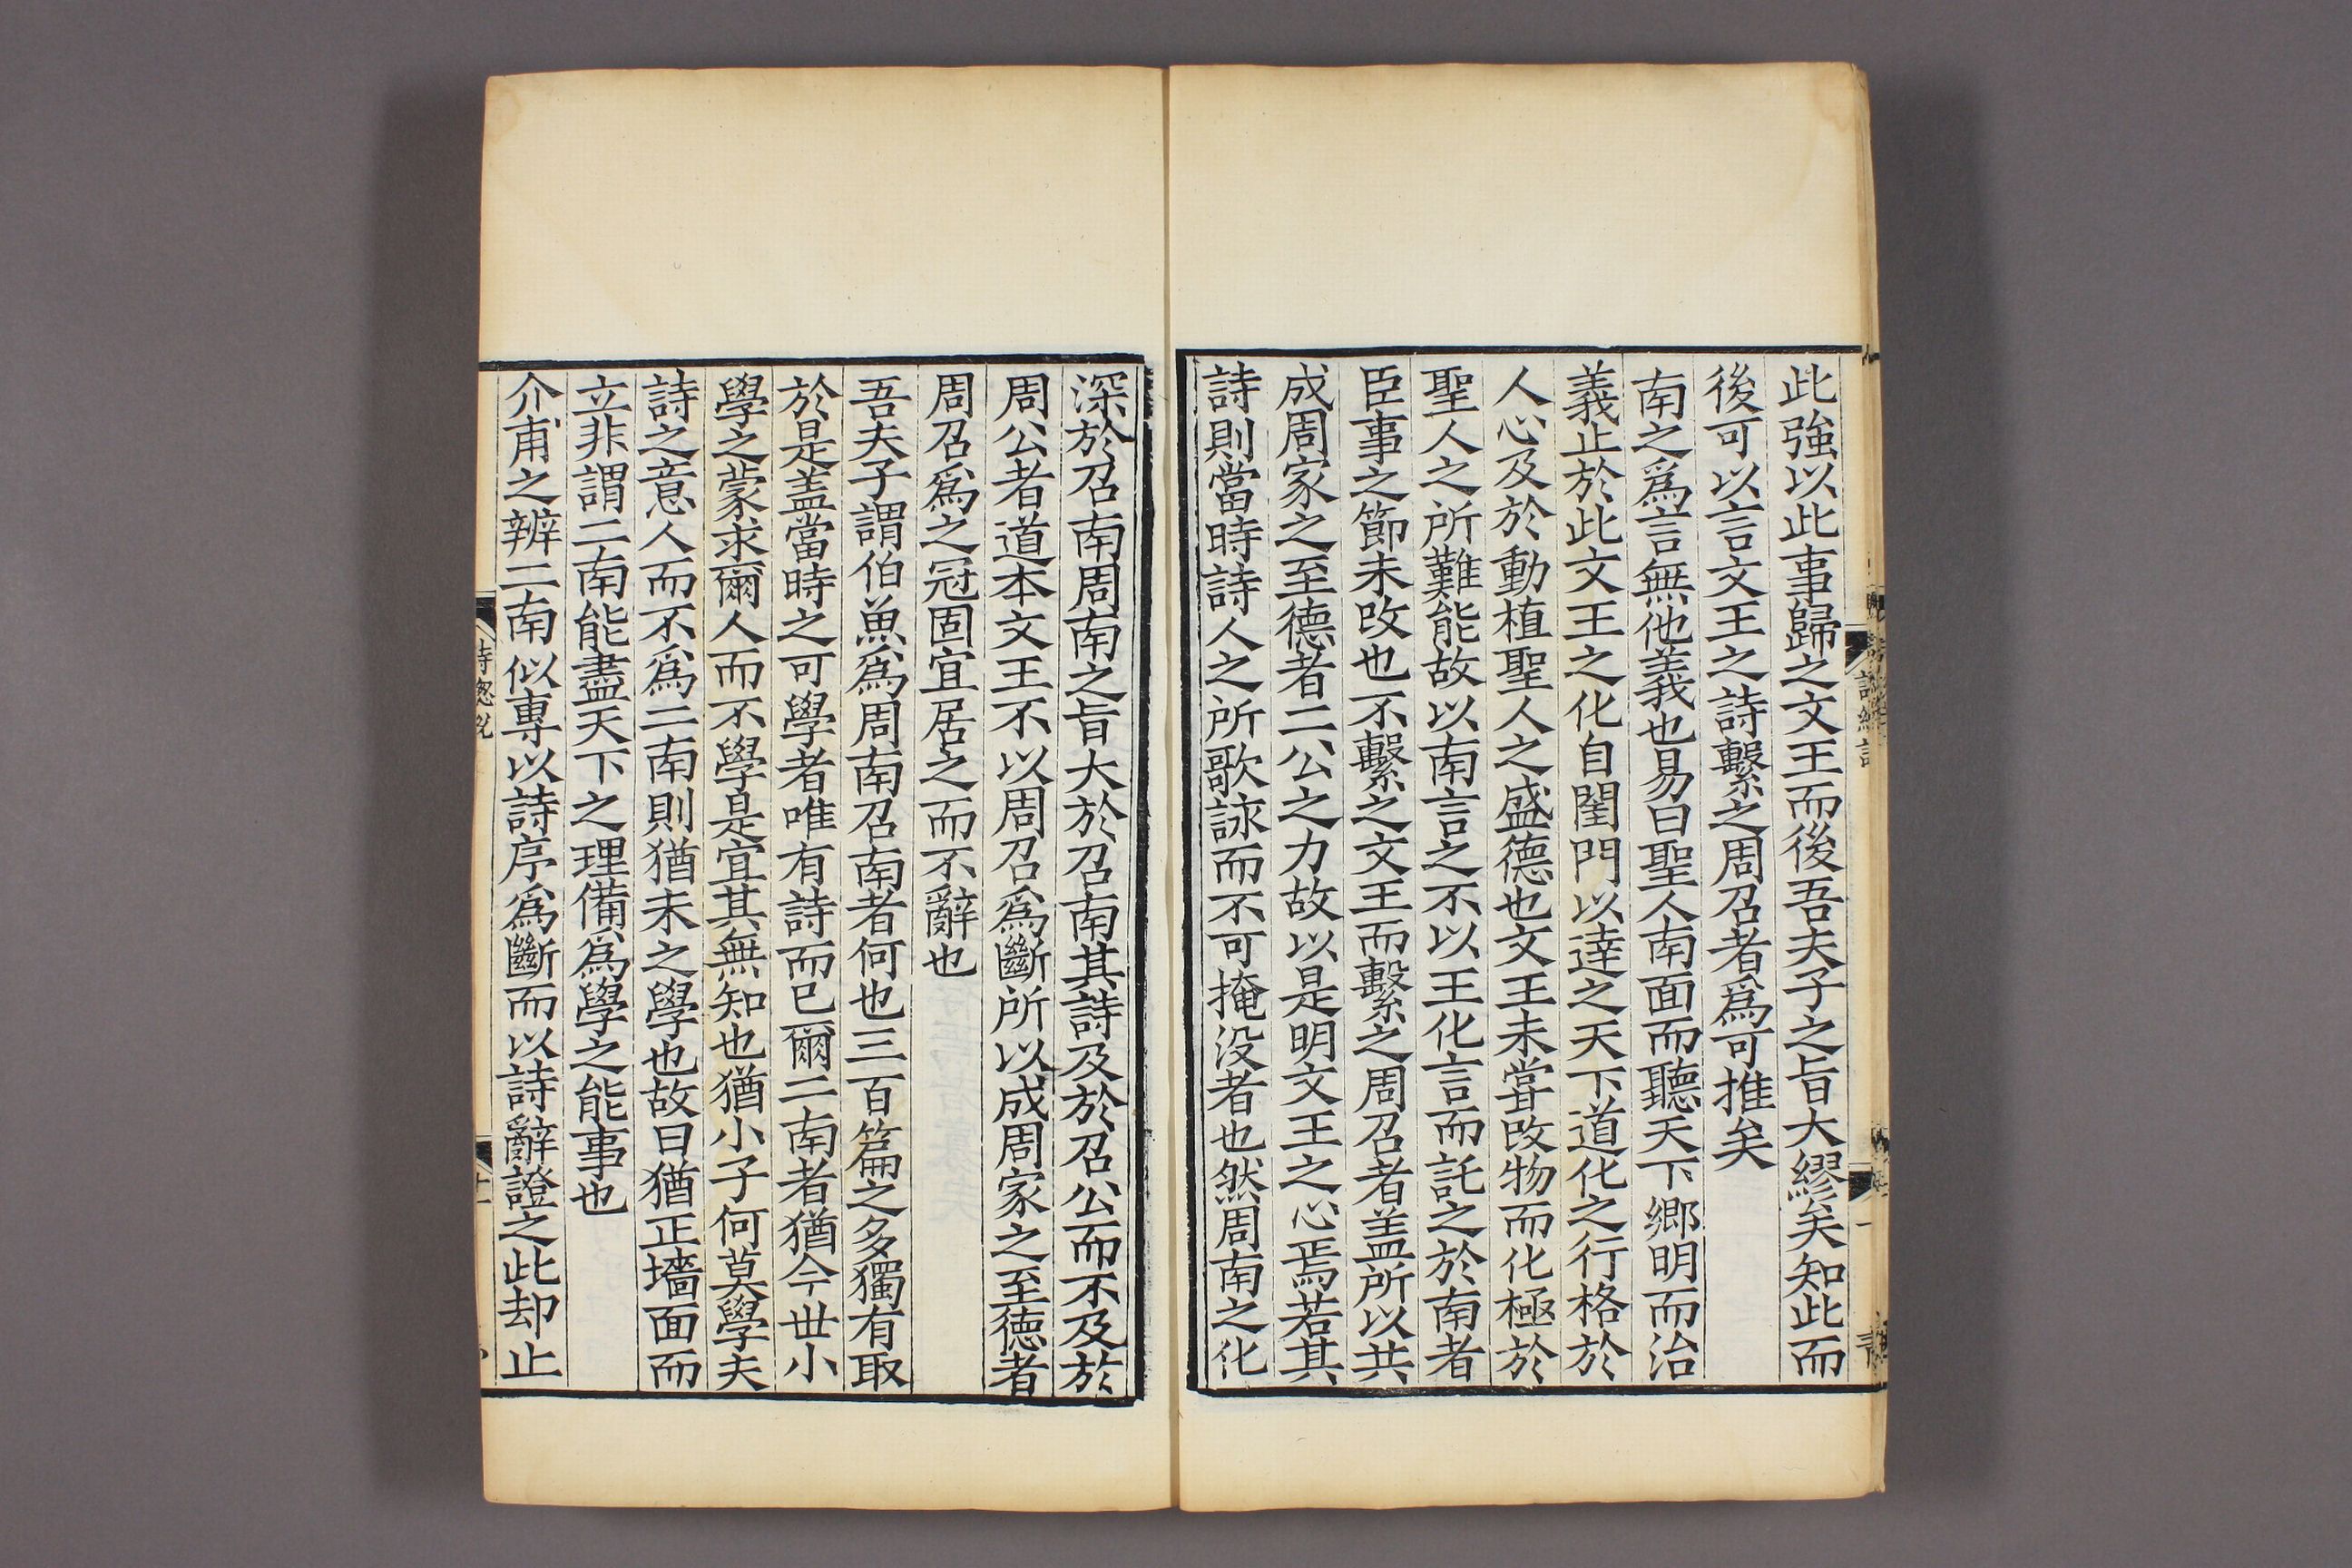 此強以此事歸之文王而後吾夫子之旨大繆矣知此而
後可以言文王之詩繫之周召者爲可推矣
南之爲言無他義也易曰聖人南面而聽天下鄉明而治
義止於此文王之化自閨門以達之天下道化之行格於
人心及於動植聖人之盛德也文王未甞改物而化極於
聖人之所難能故以南言之不以王化言而託之於南者
臣事之節未改也不繫之文王而繫之周召者盖所以共
成周家之至德者二公之力故以是明文王之心焉若其
詩則當時詩人之所歌詠而不可掩没者也然周南之化
深於召南周南之旨大於召南其詩及於召公而不及於
周公者道本文王不以周召爲斷所以成周家之至德者
周召爲之冠固宜居之而不辭也
吾夫子謂伯魚爲周南召南者何也三百篇之多獨有取
於是盖當時之可學者唯有詩而已爾二南者猶今世小
學之蒙求爾人而不學是宜其無知也猶小子何莫學夫
詩之意人而不爲二南則猶未之學也故曰猶正墻面而
立非謂二南能盡天下之理備爲學之能事也
介甫之辨二南似專以詩序爲斷而以詩辭證之此却止